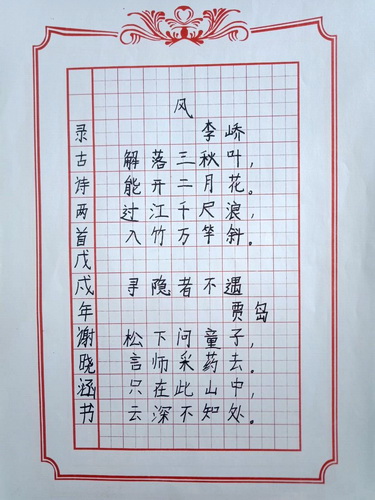 风
李峤
解落三秋叶，
能开二月花。
过江千尺浪，
入竹万竿斜。
寻隐者不遇
贾岛
松下问童子，
言师采药去。
只在此山中，
云深不知处。
录古诗两首戊戌年谢晓涵书